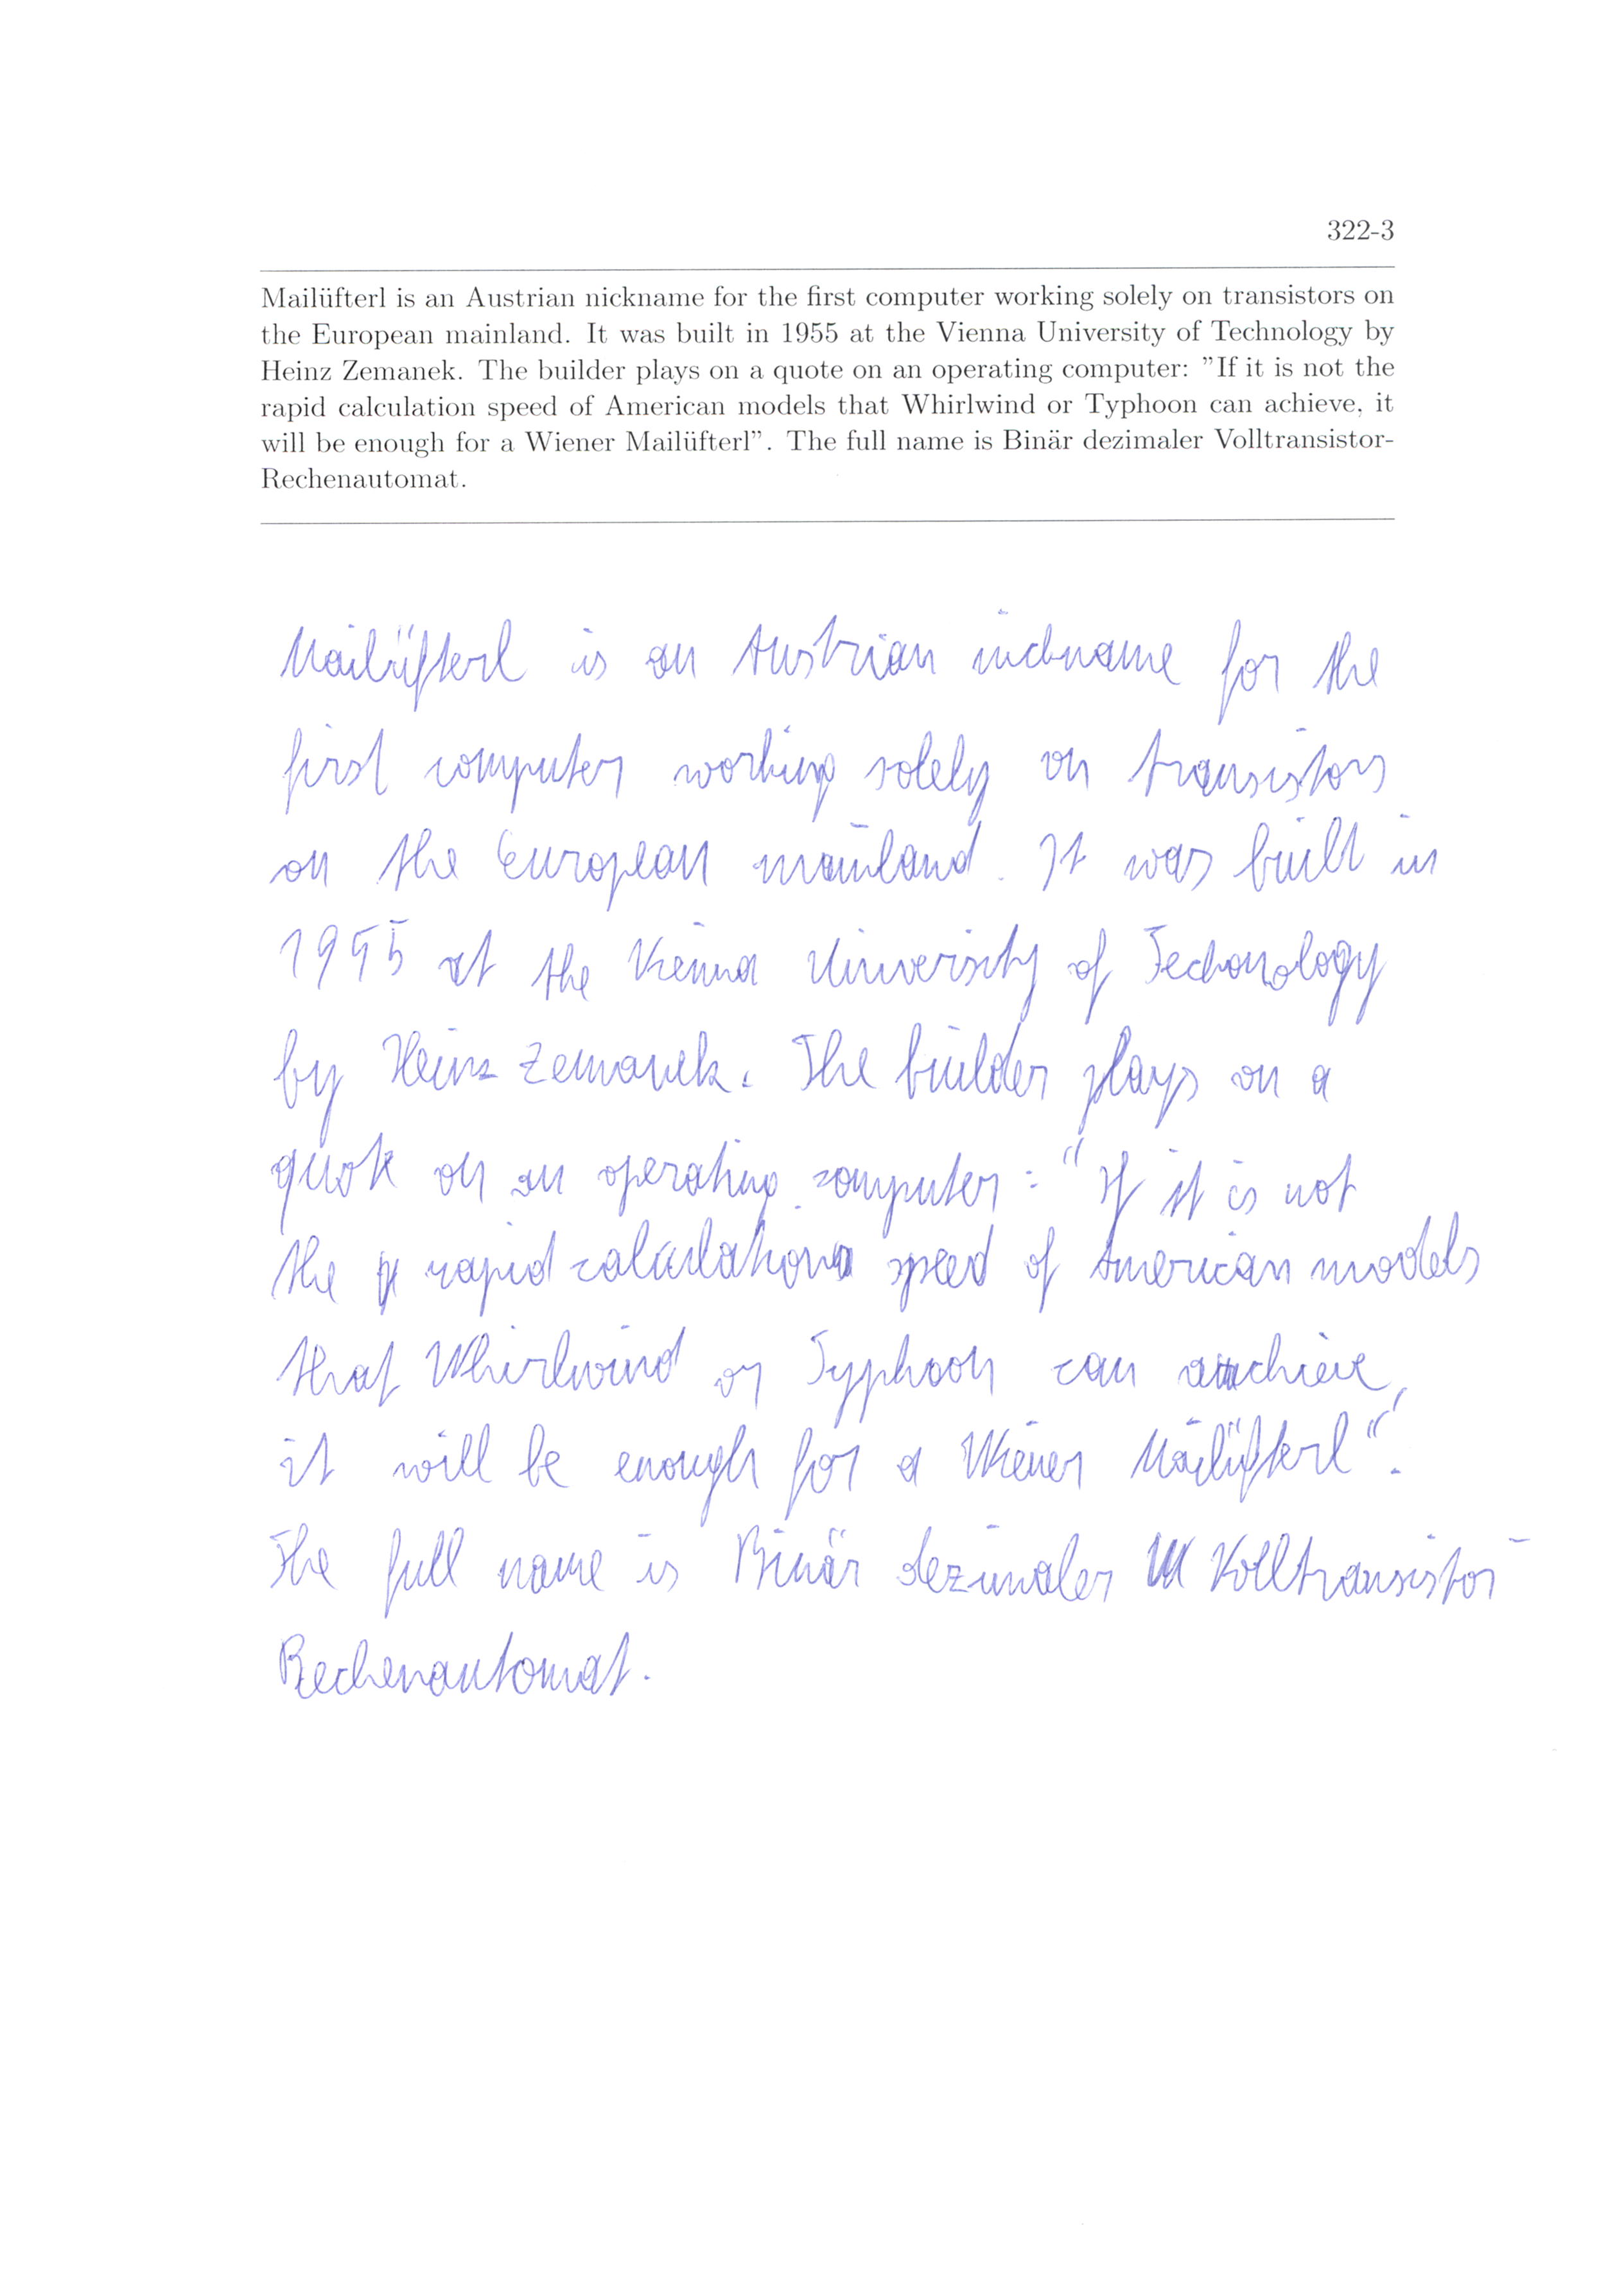 322-3
Mailüfterl is an Austrian nickname for the first computer working solely on transistors on
the European mainland. It was built in 1955 at the Vienna University of Technology by
Heinz Zemanek. The builder plays on a quote on an operating computer: "If it is not the
rapid calculation speed of American models that Whirlwind or Typhoon can achieve, it
will be enough for a Wiener Mailüfterl". The full name is Binär dezimaler Volltransistor-
Rechenautomat.
Mailüfterl is an Austrian nickname for the
first computer working solely on transistors
on the European mainland. It was built in
1955 at the Vienna University of Techonology
by Heinz Zemanek. The builder plays on a
quote on an operating computer: "If it is not
the rapid calculation speed of American models
that Whirlwind or Typhoon can achieve,
it will be enough for a Wiener Mailüfterl".
The full name is Binär dezimaler Volltransistor-
Rechenautomat.